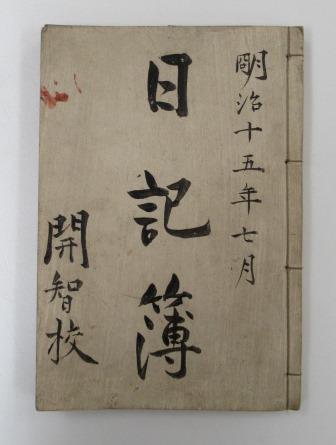 明治十五年七月
日記簿
開智校